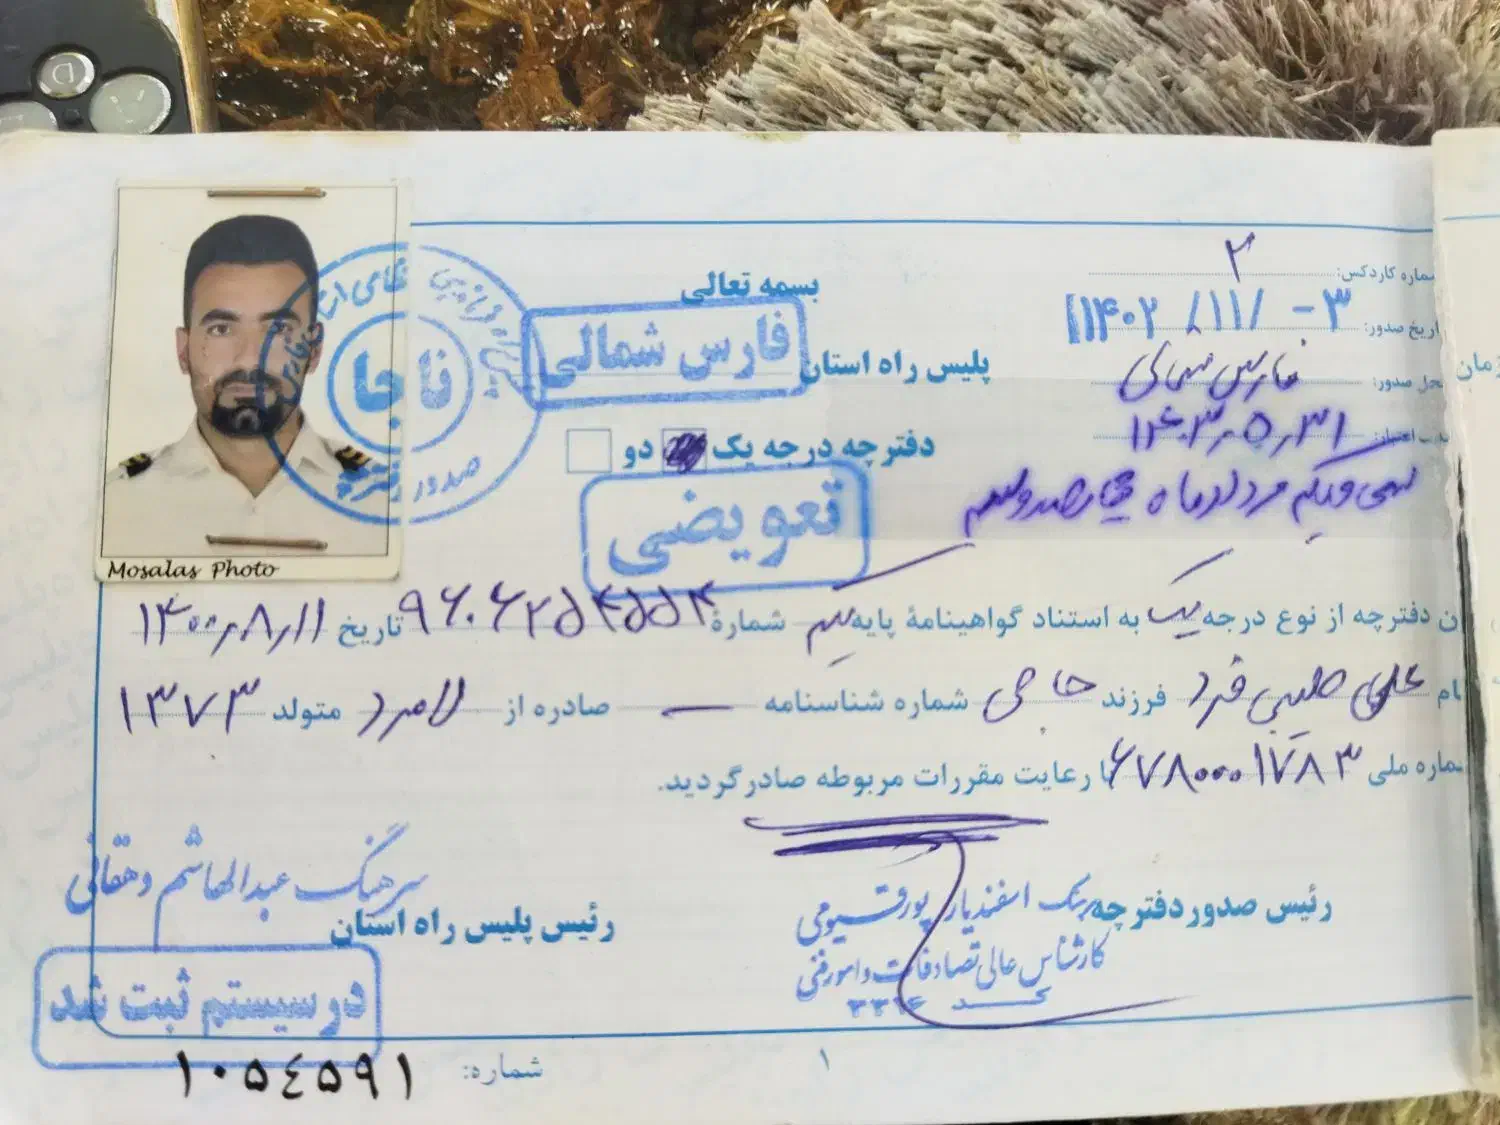 بسمه تعالی
شماره کاردکس: ۲
تاریخ صدور: ۳ - /۱۱/ ۱۴۰۲
محل صدور: فارس شمالی
۱۴۰۳,۵,۳۱
سی و یکم مرداد ماه
پلیس راه استان فارس شمالی
دفترچه درجه یک دو
تعویضی
ناجا
صدور دفترچه
Mosalas Photo
ن دفترچه از نوع درجه یک به استناد گواهینامهٔ پایه شمارهٔ تاریخ ۱۴۰۰,۸,۱۱
ام علی فرد فرزند حاجی شماره شناسنامه — صادره از لامرد متولد ۱۳۷۳
شماره ملی ۶۷۸۰۰۰۱۷۸۳ با رعایت مقررات مربوطه صادر گردید.
رئیس صدور دفترچه
سرهنگ اسفندیار پورقیومی
کارشناس عالی تصادفات و امور فنی
سرهنگ عبدالهاشم دهقانی
رئیس پلیس راه استان
در سیستم ثبت شد
شماره: ۱۰۵٤۵۹۱
۱
زمان